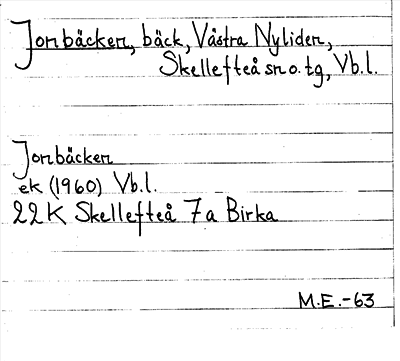 Jonbäcken, bäck, Västra Nyliden,
Skellefteå sn o. tg, Vb.l.
Jonbäcken
ek (1960) Vb.l.
22K Skellefteå 7a Birka
M.E.-63